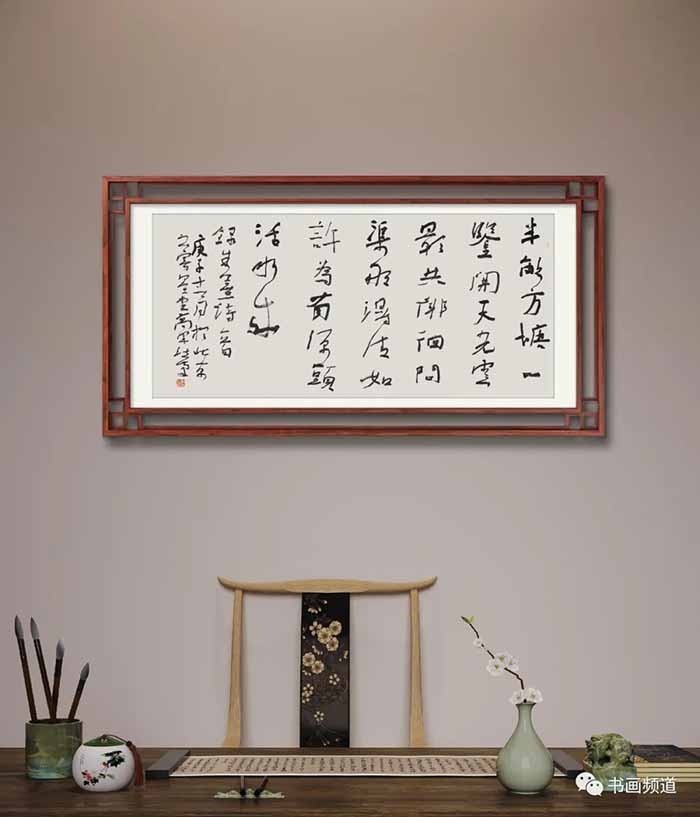 半畝方塘一
鑒開天光雲
影共徘徊問
渠那得清如
許為有源頭
活水來
錄朱熹詩一首
庚子十一月於北京
书画频道